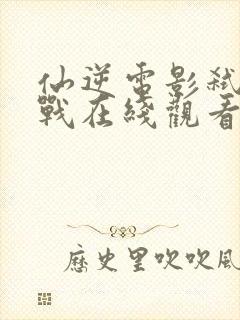 仙逆電影弒
戰在綫觀看
歷史里吹吹風